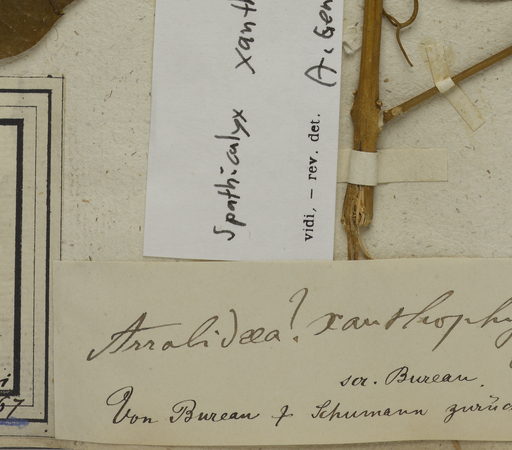 Spathicalyx xanth
A. Gen
vidi, – rev. det.
Arrabidaea? xanthophy
scr. Bureau.
Von Bureau & Schumann zurüc
i
57